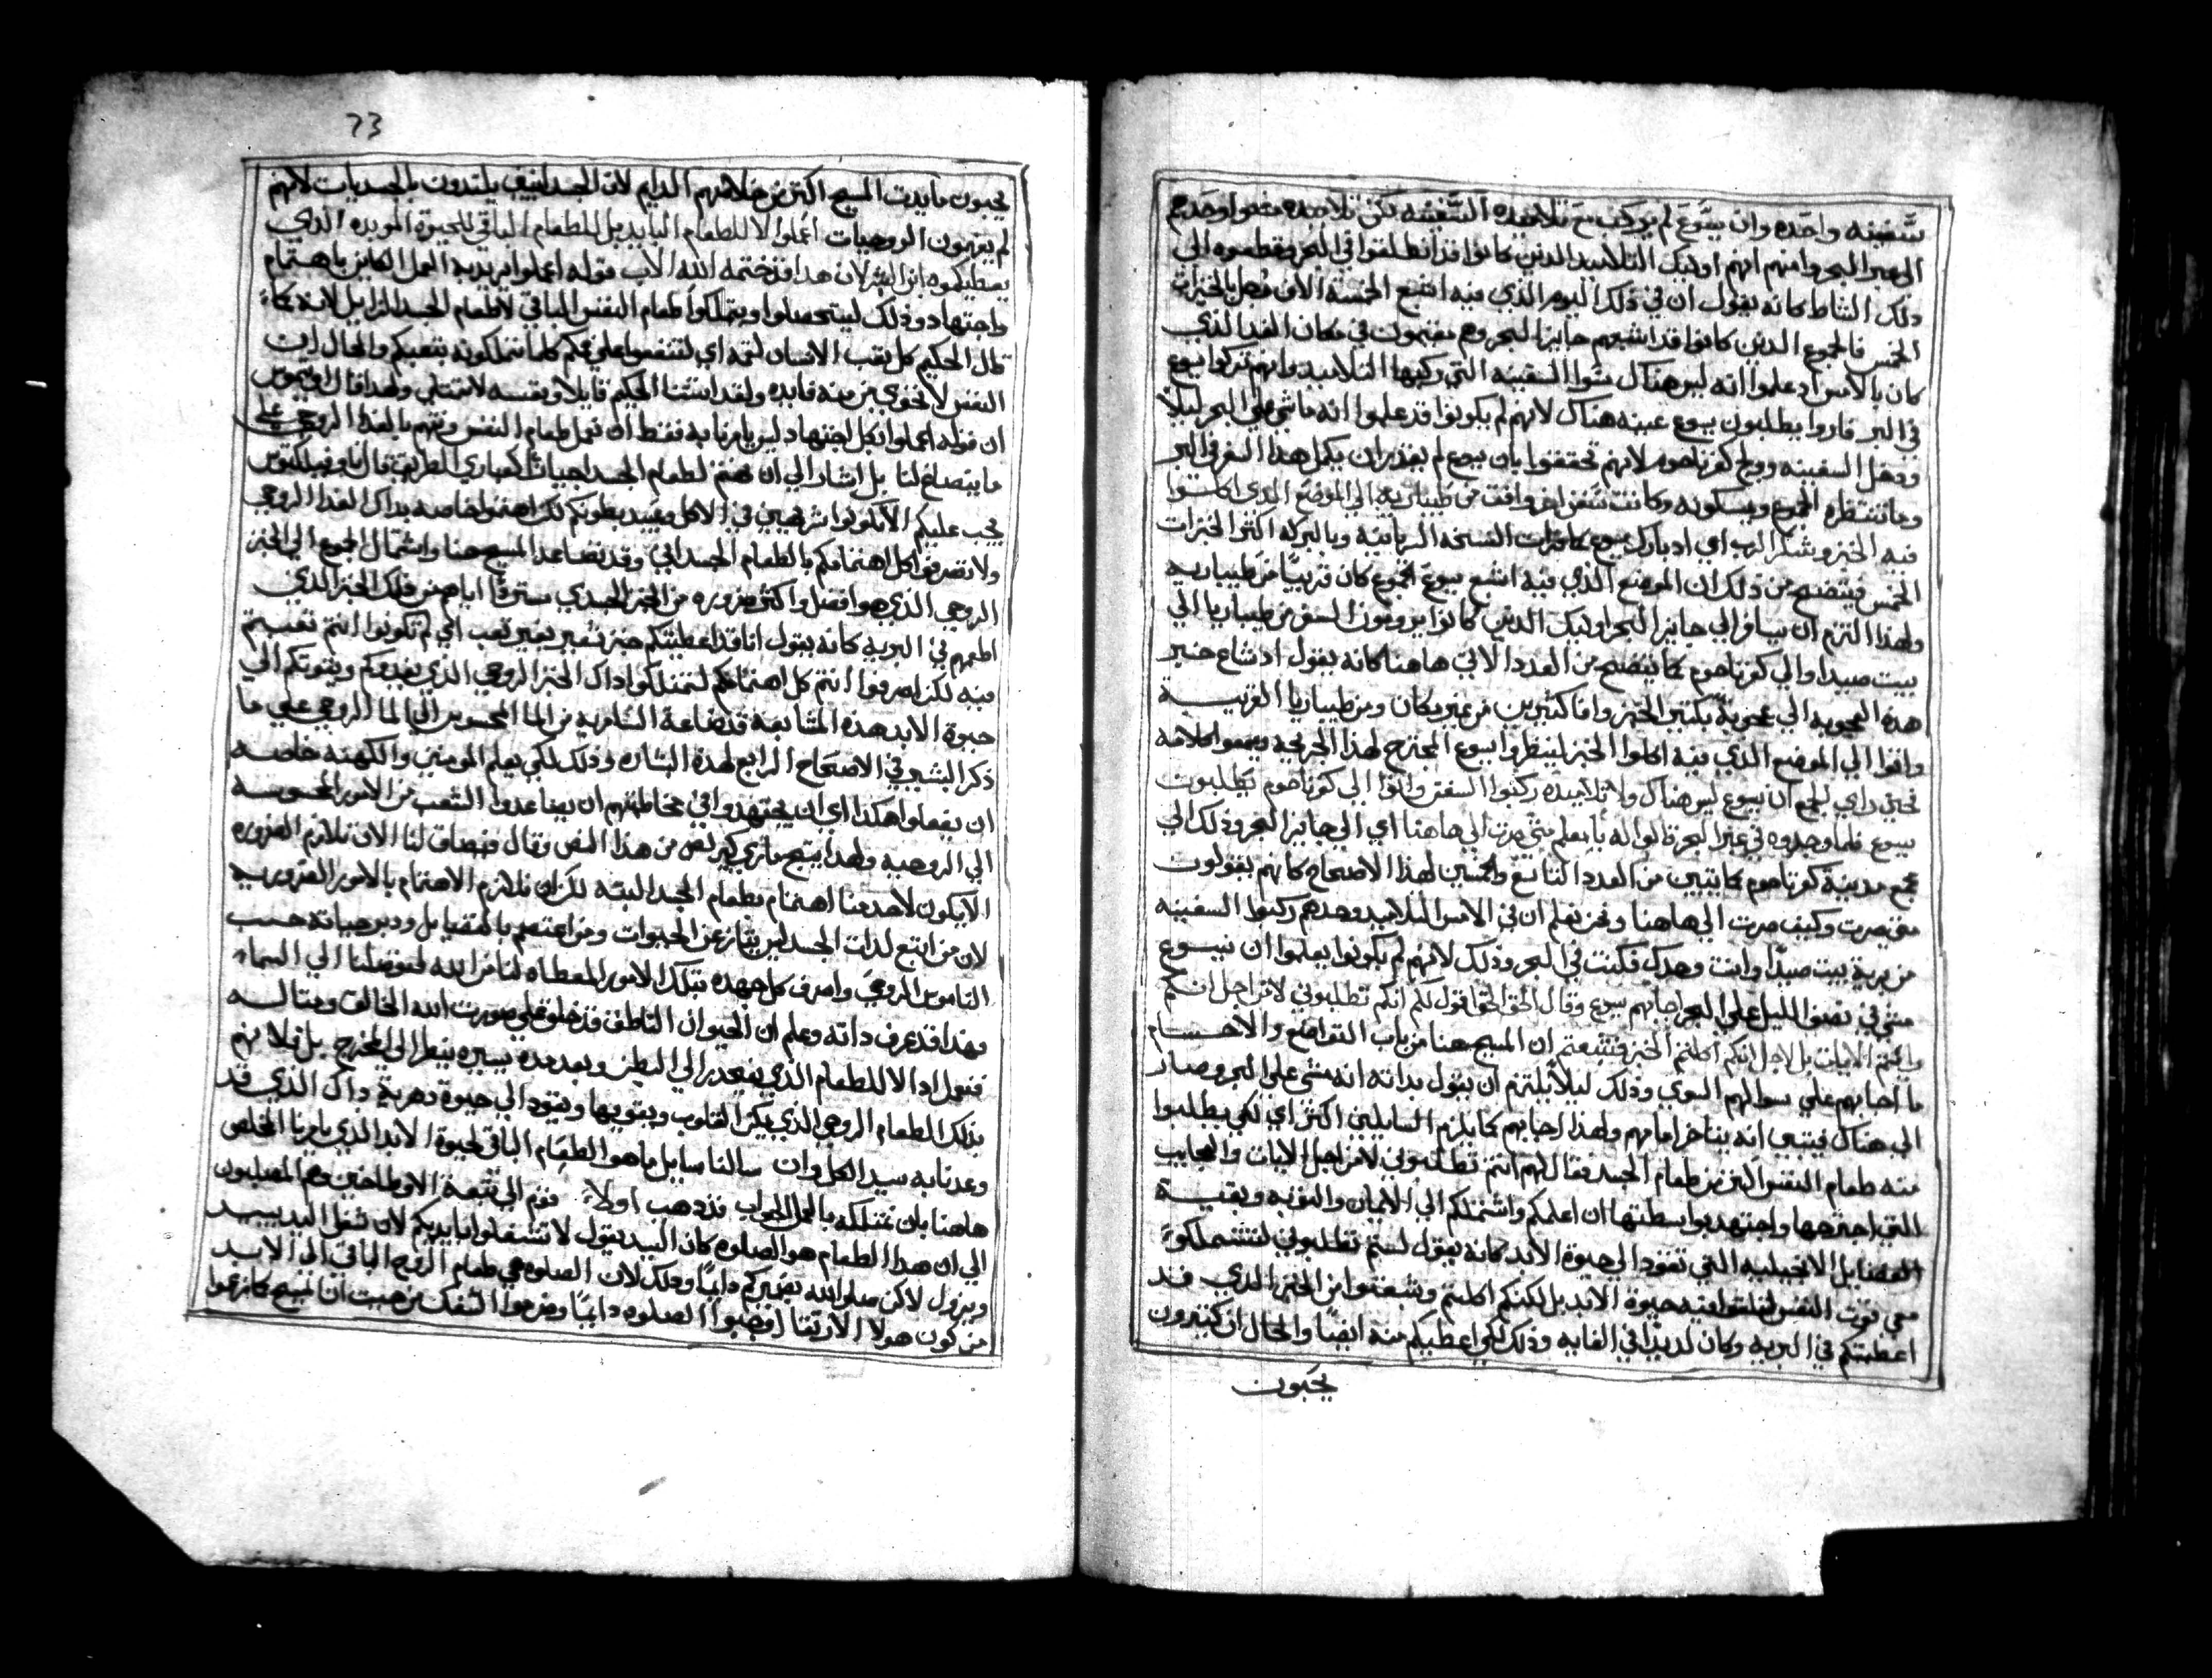 سفينه واحده وان يسوع لم يركب مع تلاميذه السفينه لكن تلاميذه مضوا وحدهم
الي عبر البحر وانهم اوليك التلاميد الدين كانوا قد انطلقوا في البحر وقطعوه الي
دلك الشاط كانه يقول ان في دلك اليوم الذي فيه اشبع الخمسة الاف رجل بالخبزات
الخمس فالجموع الدين كانوا قد اشبعهم جايز البحر وهم مقيمون في مكان الغدا لذي
كان بالامس اد علموا انه ليس هناك سوا السفينه التي ركبها التلاميد وانهم تركوا يسوع
في البر فاروا يطلبون يسوع عينه هناك لانهم لم يكونوا قد علموا انه ماشي علي البحر ليلا
ودخل السفينه ووج كفرناحوم لانهم تحققوا بان يسوع لم يقدر ان يكمل هدا السفر في البر
وما تنتظره الجموع ويسكونه وكانت سفن اخر وافت من طيباريه الي الموضع الدي اكلوا
فيه الخبز وشكر الرب اي ادبارك يسوع كما قرات النسخه السريانيه وبالبركه اكثر الخبزات
الخمس فيتضح من دلك ان الموضع الذي فيه اشبع يسوع الجموع كان قريبًا من طيباريه
ولهدا التزم ان يسافر الي جايز البحر اوليك الدين كانوا يرومون السفر من طيباريا الي
بيت صيدا والي كفرناحوم كما يتضح من العدد الاتي هاهنا كانه يقول اد شاع خبر
هده العجوبه الي عجوبة بكتير الخبز وافا كثيرين من غير مكان ومن طيباريا القريبه
واتوا الي الموضع الذي فيه اكلوا الخبز لينظروا يسوع المخترع لهدا الجريحه ويسمعوا كلامه
فحين راي الجمع ان يسوع ليس هناك ولا تلاميده ركبوا السفن واتوا الي كفرناحوم يطلبون
يسوع فلما وجدوه في عبر البحر قالوا له يا معلم متي صرت الي هاهنا اي الي جايز البحر ودلك الي
مجمع مدينة كفرناحوم كما يتبين من العدد التاسع والخمسين لهدا الاصحاح كانهم يقولون
متي صرت وكيف صرت الي هاهنا ونحن نعلم ان في الامس التلاميد وحدهم ركبوا السفينه
من برية بيت صيدًا وانت وحدك مكثت في البر ودلك لانهم لم يكونوا يعلموا ان يسوع
مشي في نصف الليل علي البحر اجابهم يسوع وقال الحق الحق اقول لكم انكم تطلبوني لا من اجل انكم
رايتم الايات بل لاجل انكم اكلتم الخبز فشبعتم ان المسيح هنا من باب التواضع والاحتسام
ما اجابهم علي سوالهم السوي ودلك ليلا يلتزم ان يقول بداته انه مشي علي البحر وصار
الي هناك فيتبين انه يفتاخر امامهم ولهدا اجابهم كما يلزم السايلين اكثر اي لكي يطلبوا
منه طعام النفس اكثر من طعام الجسد فقال لهم انتم تطلبوني لا من اجل الايات والعجايب
التي اجترحها واجتهد بواسطتها ان اعلمكم واشتملكم الي الايمان والتوبه وبقية
الفضايل الانجيليه التي تقود الي حيوة الابد كانه يقول لستم تطلبوني لتشملكوا
معي قوت النفس لتلتوا فيه حيوة الابد بل لكنكم اكلتم وشبعتوا من الخبز الدي قد
اعطيتكم في البريه وكان لديدًا في الغايه ودلك لكي اعطيكم منه ايضًا والحال ان كثيرون
يحبون
73
يحبون مايدت المسيح اكتر من خلاصهم الدايم لان الجسدانيين يلتدون بالجسديات لانهم
لم يفهمون الروحيات اعملوا لا للطعام البايد بل للطعام الباقي للحيوة الموبده الذي
يعطيكموه ابن البشر لان هدا قد ختمه الله الاب قوله اعملوا يريد به العمل الكاين باهتمام
واجتهاد ودلك ليتحصلوا ويتملكوا طعام النفس الباقي لا طعام الجسد الزايل لانه كما
قال الحكيم كل تعب الانسان لفمه اي لتنفعوا علي فمكم كلما تملكونه بتعبكم والحال ان
النفس لا تختوي من منه فايده ولقد استثنا الحكيم قايلا ونفسه لا تمتلي ولهدا قال اوتيميوس
ان قوله اعملوا بكل اجتهاد ليس يامرنا به فقط ان نعمل طعام النفس ونهتم بالغدا الروحي علي
ما يتصلح لنا بل اشار الي ان نهتم لطعام الجسد احيانًا كعابري الطريق قال تاوفيلكتوس
يجب عليكم الا تكونوا شرهين في الاكل وعبيد بطونكم لكن اهتموا خاصه بداك الغدا الروحي
ولا تصرفوا كل اهتمامكم بالطعام الجسداني وقد تصاعد المسيح هنا واشتمال الجموع الي الخبز
الروحي الذي هو افضل واكثر ضروره من الخبز الجسدي ستروًا اياهم من دلك الخبز الدي
اطعمهم في البريه كانه يقول انا قد اعطيتكم خبز شعير بغير تعب اي لم تكونوا انتم تعبتم
فيه لكن اصرفوا انتم كل اهتمامكم لتمتلكوا داك الخبز الروحي الذي يغديكم ويقوتكم الي
حيوة الابد هده المتشابهة قد تضاعة السامريه من الما المحسوس الي الما الروحي علي ما
ذكر البشير في الاصحاح الرابع لهده البشاره ودلك لكي يعلم المومنين والكهنه خاصه
ان يفعلوا هكدا اي ان يجتهدوا في مخاطبتهم ان يصاعدوا الشعب من الامور المحسوسه
الي الروحيه ولهدا ينتج ماري كيرلص من هدا النص وقال فيضاف لنا الان تلازم الضروره
الا يكون لاحد منا اهتمام بطعام الجسد البته لكن ان نلازم الاهتمام بالامور الضروريه
لان من اتبع لدات الجسد ليس يتايز عن الحيوات ومن اعتصم بالفضايل ودبر حياته حسب
الناموس الروحي واصرف كل جهده بتلك الامور المعطاه لنا من الله لتوصلنا الي السماء
فهدا قد عرف داته وعلم ان الحيوان الناطق قد خلق علي صورت الله الخالق ومتاله
فنعمل ادا لا للطعام الذي ينحدر الي البطن وبعد مده يسيره ينظر الي المخرج بل فلانهم
بدلك الطعام الروحي الذي يمكن القلوب ويقويها ويقود الي حيوة دهرية وداك الذي قد
وعدنا به سيد الكل وان سالنا سايل ما هو الطعام الباقي لحيوة الابد الدي يامرنا المخلص
هاهنا بان نمتلكه بالعمل الجواب فدهب اولاً قوم الي بدعة الاوطاخيين وهم المصليون
الي ان هدا الطعام هو الصلوه كان السيد يقول لا تشتغلوا بايديكم لان شغل اليد يبيد
ويزول لاكن صلوا لله بضميركم دايمًا ودلك لان الصلوه هي طعام الروح الباقي الي الابد
من كون هولا الاراتقا اوجبوا الصلوه دايمًا ورفضوا الشغل من حيث ان المسيح كما زعموا